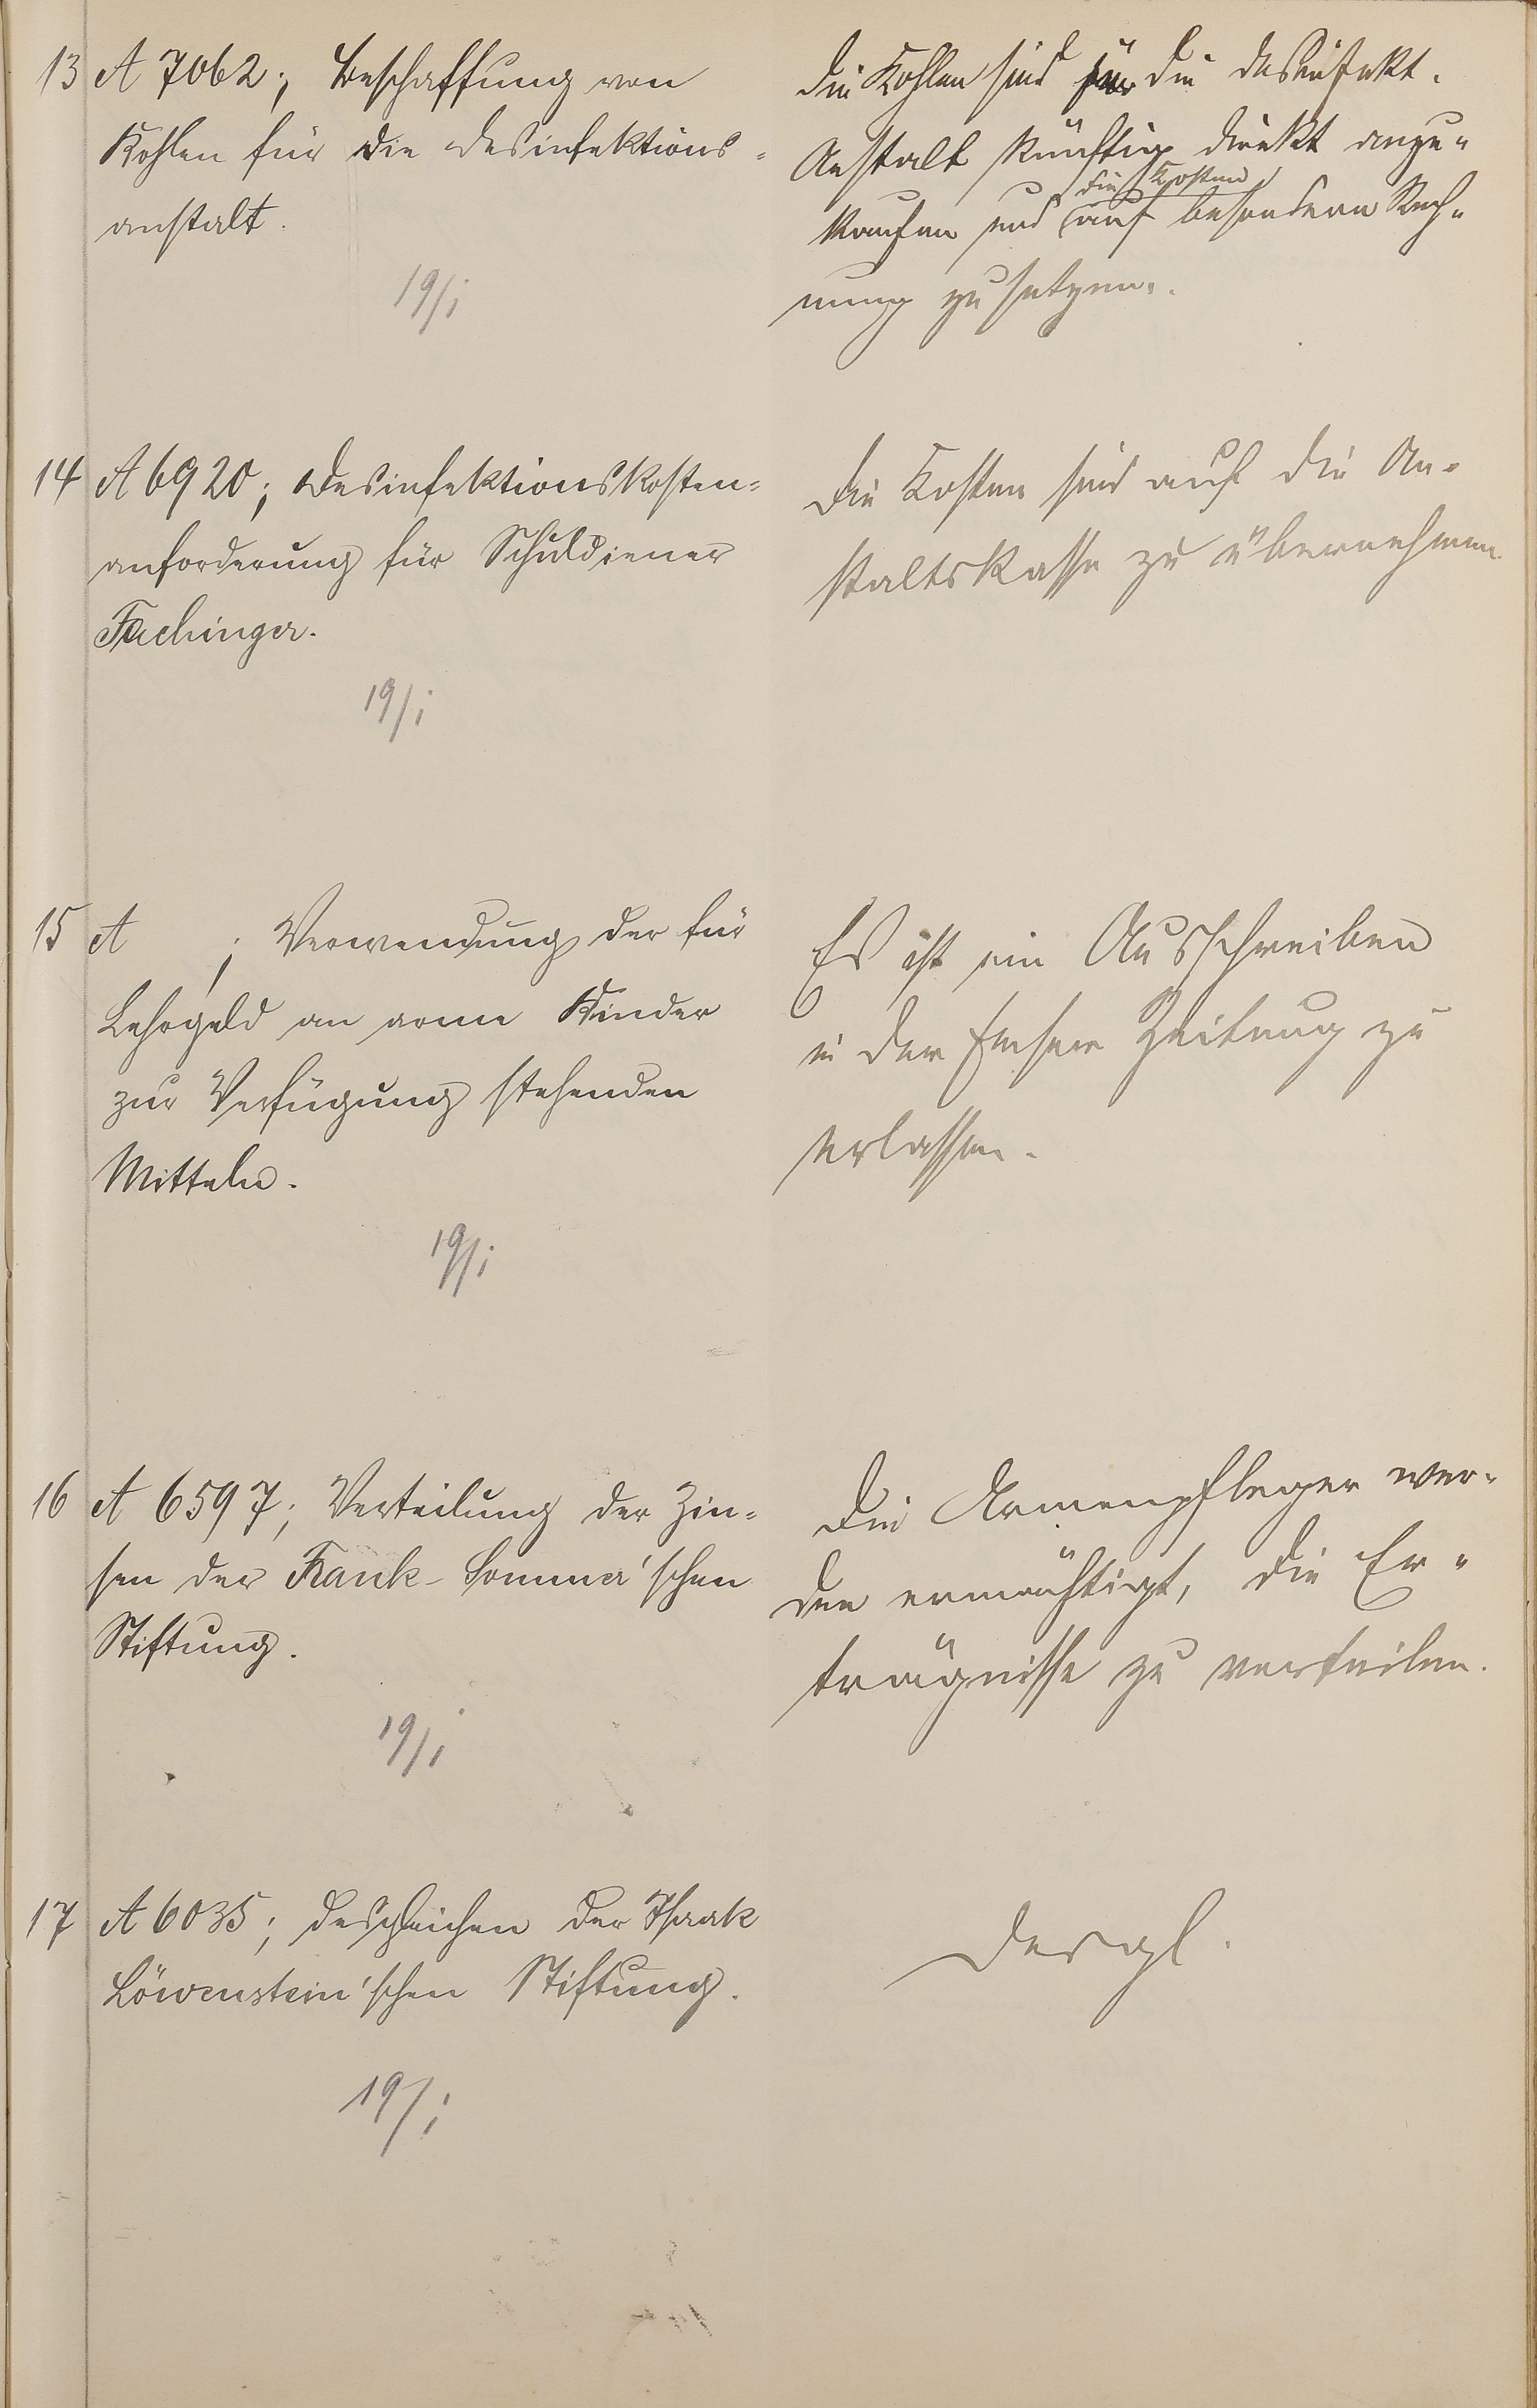 13 A 7062; Beschaffung von
Kohlen für die Desinfektions-
anstalt.
19/I
Die Kohlen sind für die Desinfekt.
Anstalt künftig direkt anzu-
die Kosten
kaufen und auf besondern Rech-
nung zu setzen.
14 A 6920; Desinfektionskosten-
anforderung für Schuldiener
Fachinger.
19/I
Die Kosten sind auf die An-
staltskasse zu übernehmen.
15 A ; Verwendung der für
Lehrgeld an arme Kinder
zur Verfügung stehenden
Mitteln.
19/I
Es ist ein Ausschreiben
in der Emser Zeitung zu
erlassen.
16 A 6597; Verteilung der Zin-
sen der Frank-Sommer'schen
Stiftung.
19/I
Die Armenpfleger wer-
den ermächtigt, die Er-
trägnisse zu verteilen.
17 A 6035; desgleichen der Isaak
Löwenstein'schen Stiftung.
19/I
Dergl.